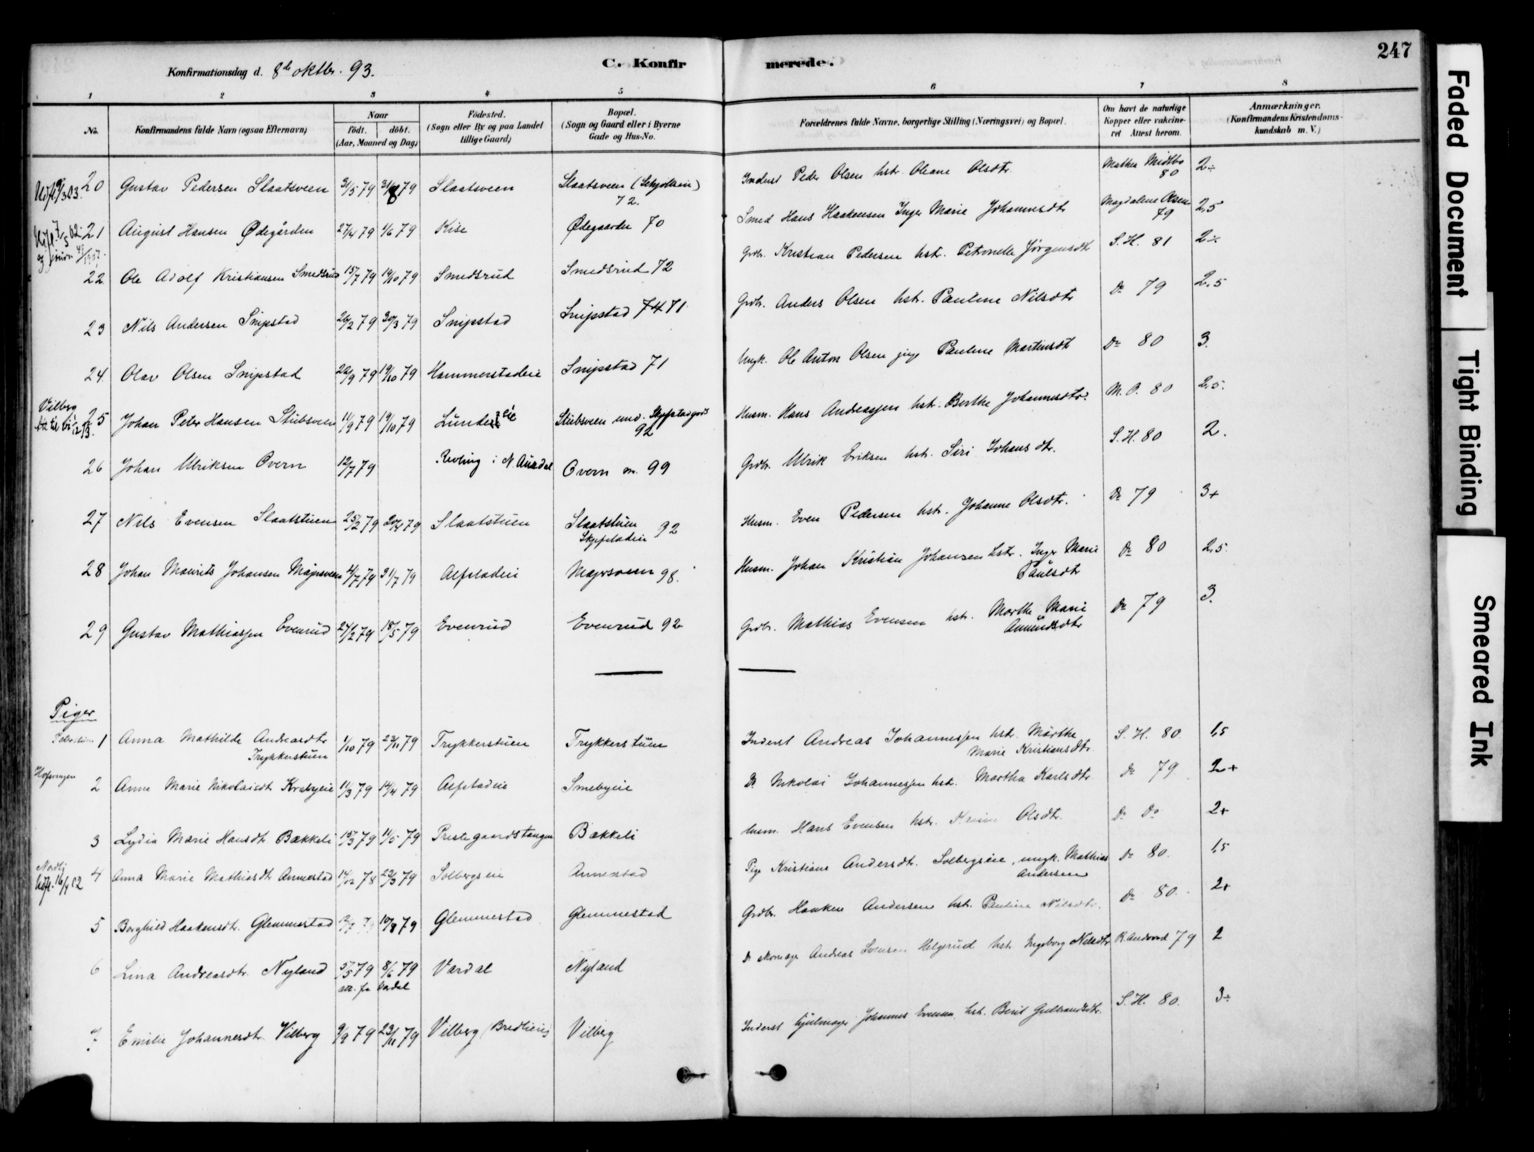 247
Konfirmationsdag d. 8de oktbr. 93.
C. Konfirmerede.
1 2 3 4 5 6 7 8
No. Konfirmandens fulde Navn (ogsaa Efternavn) Naar født. døbt. (Aar, Maaned og Dag) Fødested. (Sogn eller By og paa Landet tillige Gaard) Bopæl. (Sogn og Gaard eller i Byerne Gade og Hus-No. Forældrenes fulde Navne, borgerlige Stilling (Næringsvei) og Bopæl. Om havt de naturlige Kopper eller vakcineret Attest herom. Anmærkninger. (Konfirmandens Kristendomskundskab m. V.)
20 Gustav Pedersen Slaatsveen 31/5 79 79 Slaatsveen Slaatsveen 72 Inderst Peder Olsen hst. Oleane Olsdtr. Mathea 80 2÷
21 August Hansen Ødegården 27/4 79 1/6 79 Kise Ødegaarden 70 Smed Hans Haakensen Inger Marie Johannesdtr Magdalene Olsen 79 2,5
22 Ole Adolf Kristiansen Smedsrud 15/7 79 19/10 79 Smedsrud Smedsrud 72 Grdbr. Kristian Pedersen hst. Petronelle Jørgensdtr S.H. 81 2÷
23 Nils Andersen Snipstad 26/2 79 30/3 79 Snipstad Snipstad 71 Grdbr. Anders Olsen hst. Pauline Nilsdtr Do 79 2,5
24 Olav Olsen Snipstad 22/9 79 19/10 79 Hammerstadeie Snipstad 71 Ungk. Ole Anton Olsen pige Pauline Martinsdtr Do 80 3.
25 Johan Peter Hansen Stubsveen 11/9 79 19/10 79 Lundeseie Stubsveen und. 92 Husm. Hans Andreasen hst. Berthe Johannesdtr. M.O. 80 2,5.
26 Johan Ulriksen Overn 12/7 79 i N. Aurdal Overn 99 Grdbr. Ulrik Eriksen hst. Siri Johansdtr. S.H. 80 2.
27 Nils Evensen Slaatstuen 25/2 79 20/4 79 Slaatstuen Slaatstuen 92 Husm. Even Pedersen hst. Johanne Olsdtr. Do 79 3+
28 Johan Maurits Johansen 4/7 79 31/7 79 Alfstadeie 98. Husm. Johan Kristian Johansen hst. Inger Marie Paulsdtr Do 80 2,5.
29 Gustav Mathiasen Evenrud 24/2 79 18/5 79 Evenrud Evenrud 92 Grdbr. Mathias Evensen hst. Marthe Marie Amundsdtr Do 79 3.
Piger
1 Anna Mathilde Andreasdtr Trykkerstuen 1/10 79 23/11 79 Trykkerstuen Trykkerstuen Inderst Andreas Johannesen hst. Marthe Marie Kristiansdtr. S.H. 80. 1,5
2 Anne Marie Nikolaisdt Krabyeie 1/3 79 14/4 79 Alfstadeie Smebyeie Do Nikolai Johannesen hst. Martha Karlsdtr Do 79 2+
3 Lydia Marie Hansdt Bækkeli 15/3 79 11/5 79 Prestegaardstangen Bækkeli Husm. Hans Evensen hst. Olsdtr. Do Do 2+
4 Anna Marie Mathiasdt Annestad 14/12 78 23/3 79 Solbergseie Annestad Pige Kristiane Andersdt. Solbergseie, ungk. Mathias Andersen Do 80. 1,5
5 Borghild Haakensdt. Glemmestad 79 Glemmestad Glemmestad Grdbr. Haaken Andersen hst. Pauline Nilsdtr. Do 80. 2+
6 Lina Andreasdtr. Nyland 5/5 79 8/6 79 Vardal Nyland Andreas Svensen Helgerud hst. Ingeborg Nilsdtr 79 2
7 Emilie Johannesdtr. Vilberg 9/9 79 23/11 79 Vilberg Vilberg Inderst Hjulmager Johannes Evensen hst. Berit Gulbrandsdtr. S.H. 80. 3÷
Faded Document
Tight Binding
Smeared Ink